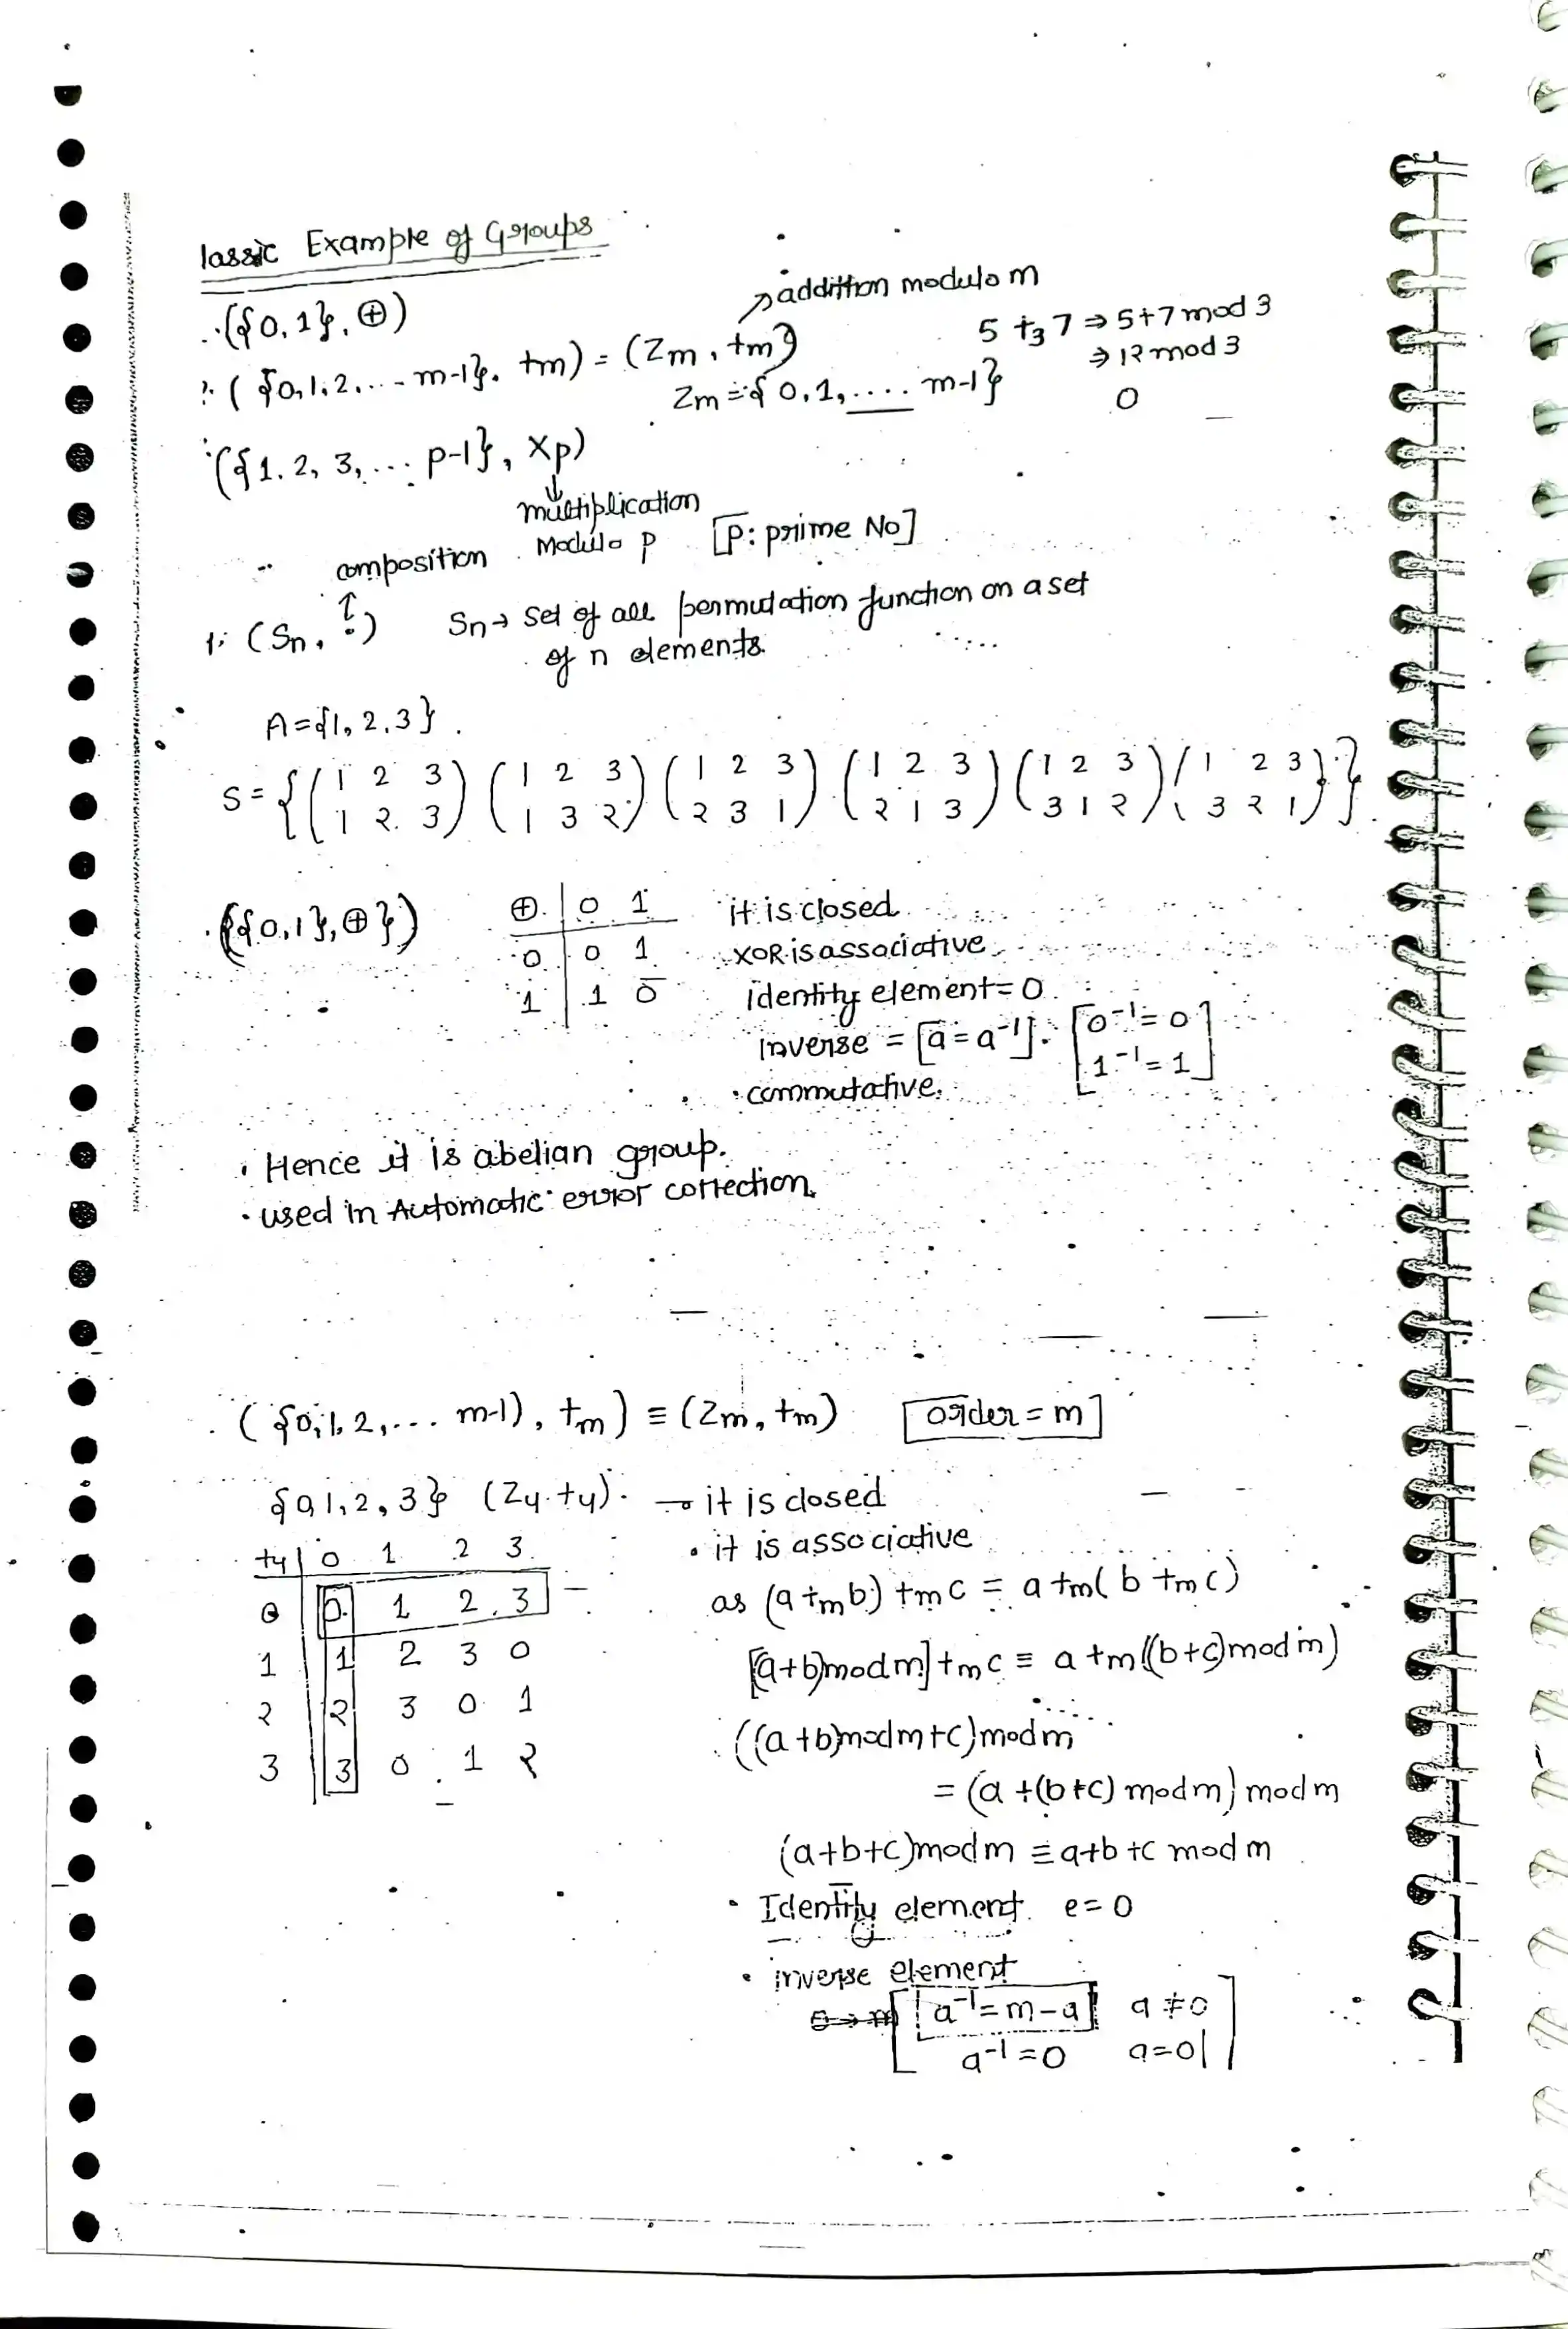 lassic Example of Groups
({0,1}, ⊕)
({0,1,2,... m-1}, +m) = (Zm, +m)
↗ addittion modulo m
Zm = {0,1,.... m-1}
5 +3 7 ⇒ 5+7 mod 3
⇒ 12 mod 3
0
({1, 2, 3, ... p-1}, Xp)
↓
multiplication
Modulo p [P: prime No]
composition
↑
(Sn, ) Sn → Set of all permutation function on a set
of n elements.
A = {1, 2, 3}
S = {(1 2 3) (1 2 3) (1 2 3) (1 2 3) (1 2 3) (1 2 3)}
(1 2 3) (1 3 2) (2 3 1) (2 1 3) (3 1 2) (3 2 1)
({0,1}, ⊕})
⊕ | 0 1
0 | 0 1
1 | 1 0
it is closed
XOR is associative
identity element = 0
inverse = [a = a⁻¹] [0⁻¹ = 0
1⁻¹ = 1]
• commutative.
• Hence it is abelian group.
• used in Automatic error correction.
({0,1,2,... m-1), +m) ≡ (Zm, +m) [order = m]
{0,1,2,3} (Z4, +4). → it is closed
+4 | 0 1 2 3
0 | 0 1 2 3
1 | 1 2 3 0
2 | 2 3 0 1
3 | 3 0 1 2
• it is associative
as (a +m b) +m c = a +m( b +m c)
[(a+b)mod m] +m c ≡ a +m((b+c)mod m)
((a+b)mod m+c)mod m
= (a +(b+c) mod m) mod m
(a+b+c)mod m ≡ a+b+c mod m
• Identity element e = 0
• inverse element
[a⁻¹ = m-a a ≠ 0
a⁻¹ = 0 a = 0]